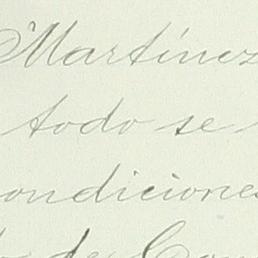 Martínez
todo se
condiciones
de Con